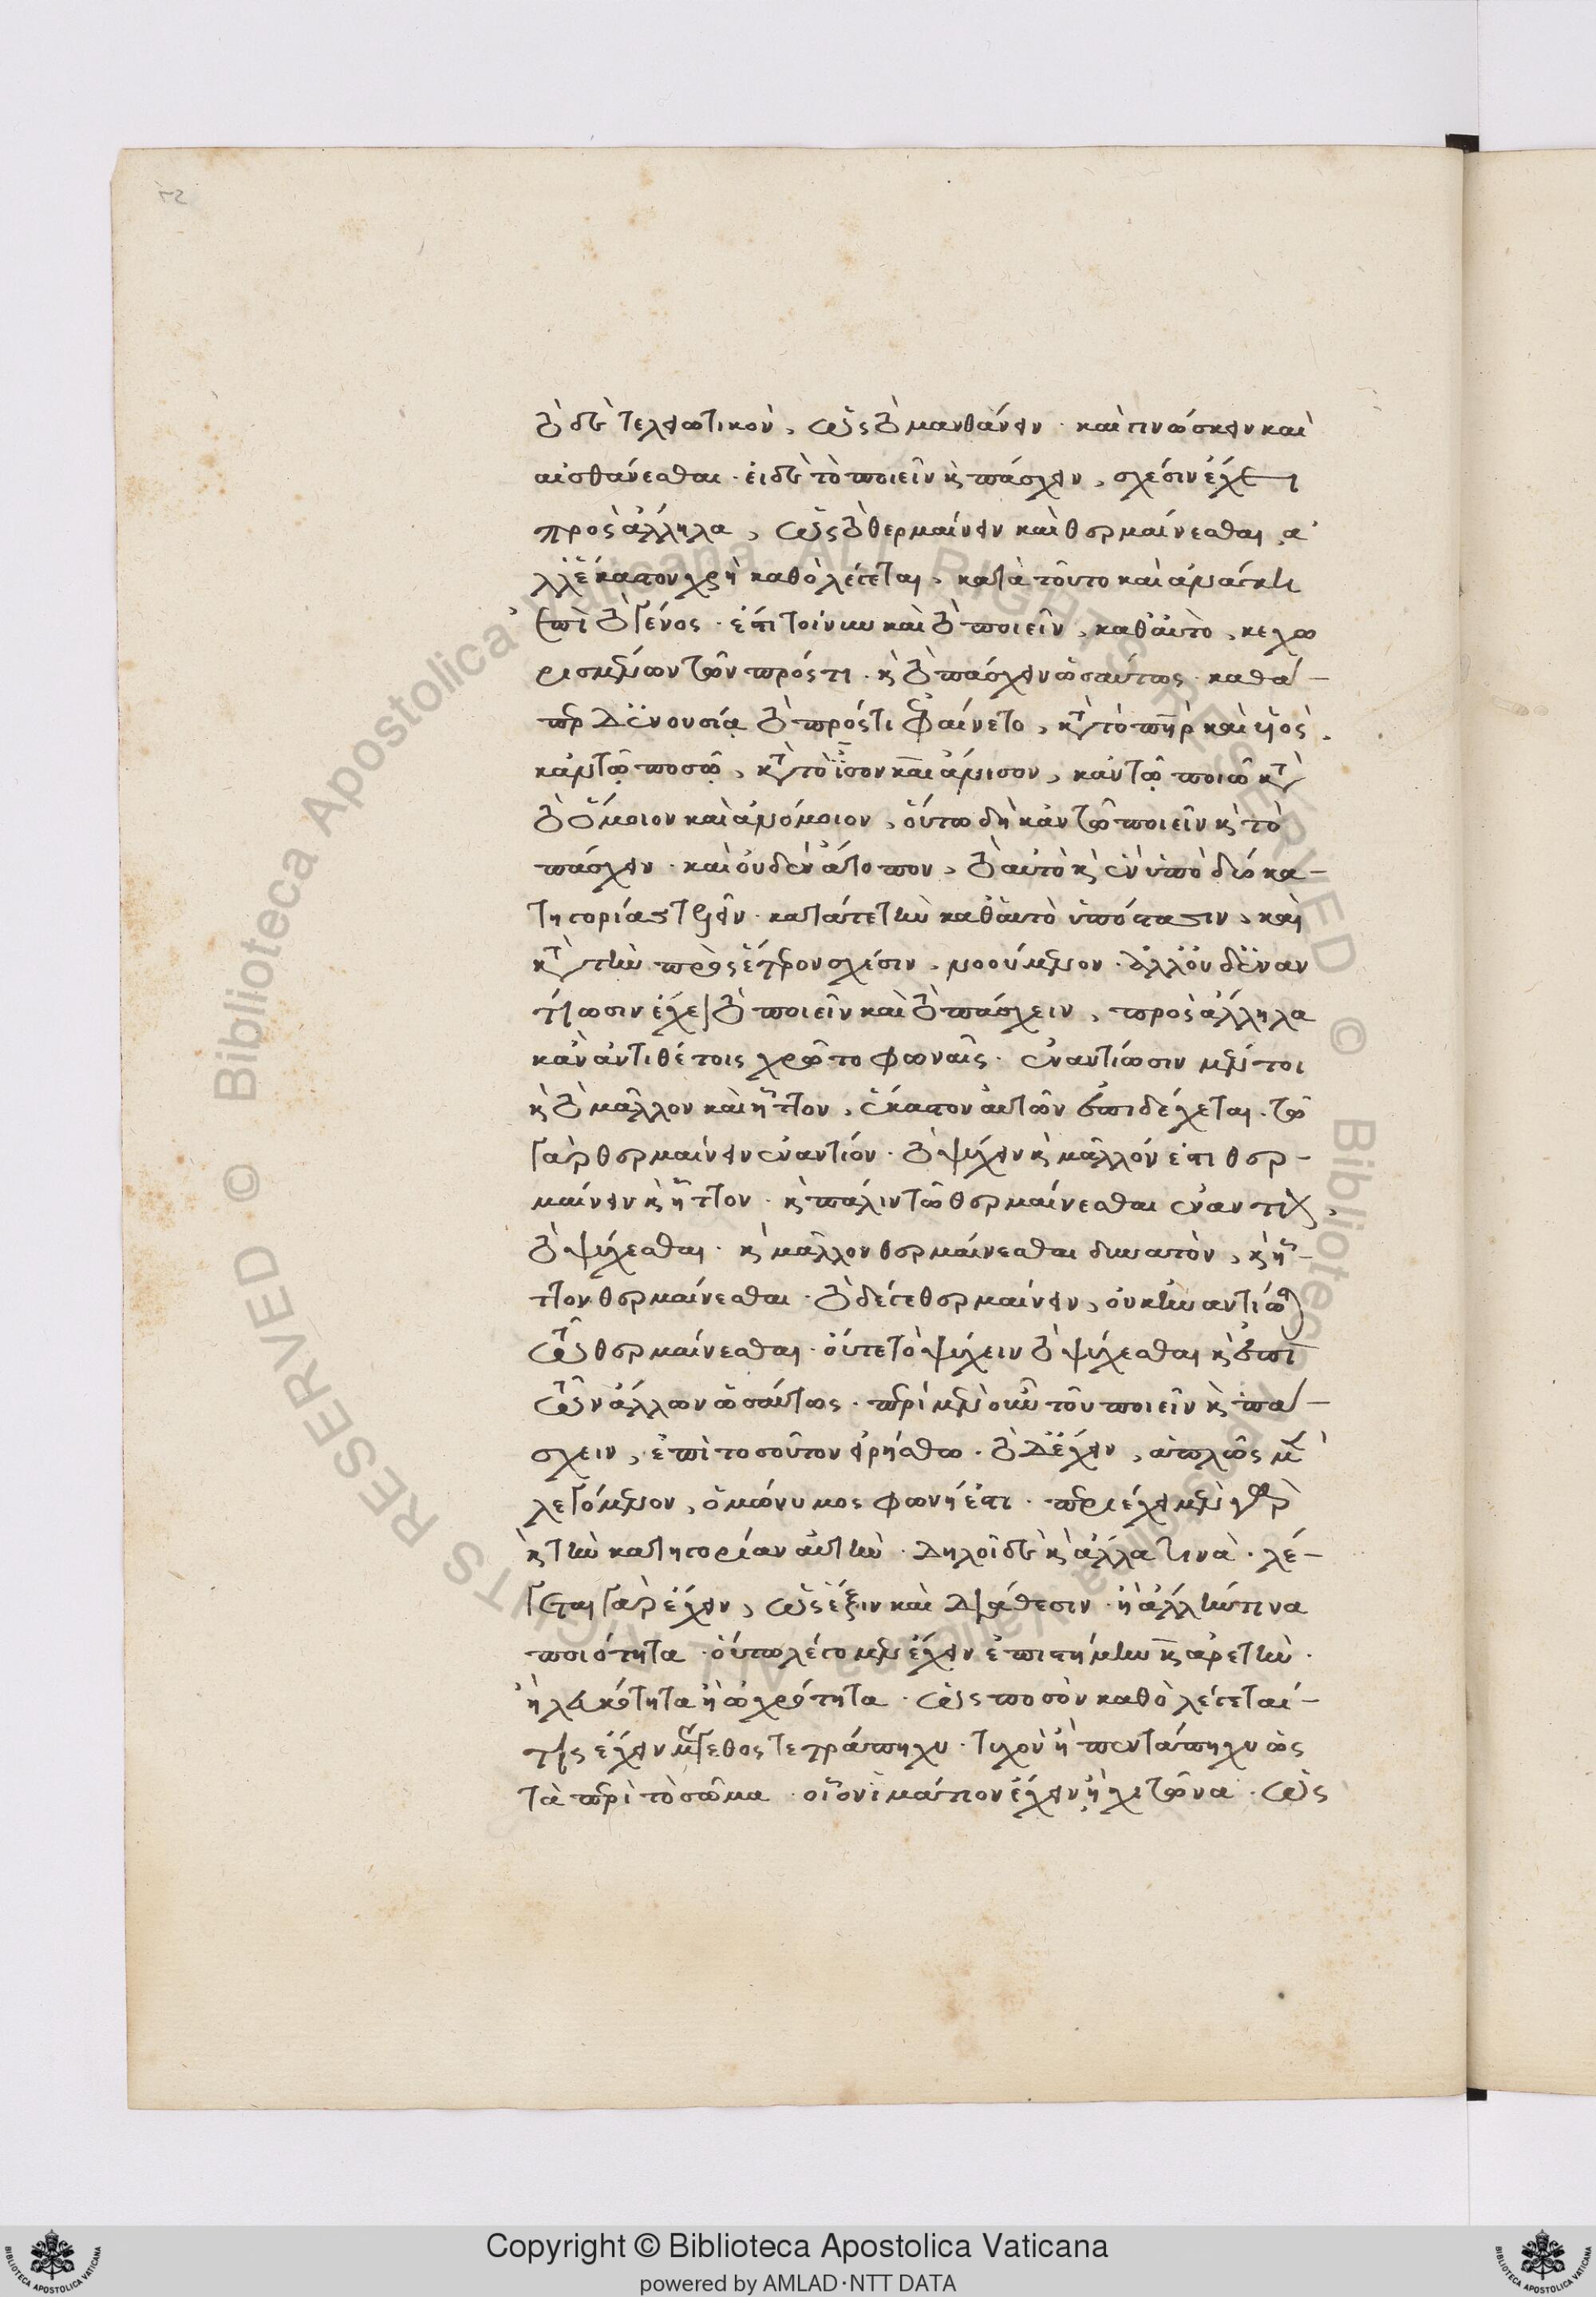 τὸ δὲ τελειωτικὸν, ὡς τὸ μανθάνειν · καὶ γινώσκειν καὶ
αἰσθάνεσθαι · εἰ δὲ τὸ ποιεῖν καὶ πάσχειν, σχέσιν ἔχει
πρὸς ἄλληλα, ὡς τὸ θερμαίνειν καὶ θερμαίνεσθαι, ἀ
λλ' ἕκαστον χρὴ καθὸ λέγεται, κατὰ τοῦτο καὶ ἀνάγειν
ἐπὶ τὸ γένος · ἔστι τοίνυν καὶ τὸ ποιεῖν, καθ' αὑτὸ, κεχω
ρισμένον τῶν πρός τι · καὶ τὸ πάσχειν ὡσαύτως · καθά-
περ δ' ἐν οὐσίᾳ τὸ πρός τι ἐφαίνετο, κατὰ τὸ πατὴρ καὶ υἱὸς ·
κἀν τῷ ποσῷ, κατὰ τὸ ἴσον καὶ ἄνισον, κἀν τῷ ποιῷ κατὰ
τὸ ὅμοιον καὶ ἀνόμοιον, οὕτω δὴ κἀν τῷ ποιεῖν καὶ τὸ
πάσχειν · καὶ οὐδὲν ἄτοπον, τὸ αὐτὸ καὶ ἓν ὑπὸ δύο κα-
τηγορίας τελεῖν · κατά τε τὴν καθ' αὑτὸ ὑπόστασιν, καὶ
κατὰ τὴν πρὸς ἕτερον σχέσιν, νοούμενον · ἀλλ' οὐδ' ἐναν
τίωσιν ἔχει τὸ ποιεῖν καὶ τὸ πάσχειν, πρὸς ἄλληλα
κἂν ἀντιθέτοις χρῶτο φωναῖς · ἐναντίωσιν μέντοι
καὶ τὸ μᾶλλον καὶ ἧττον, ἕκαστον αὐτῶν ἐπιδέχεται · τῷ
γὰρ θερμαίνειν ἐναντίον · τὸ ψύχειν καὶ μᾶλλόν ἐστι θερ-
μαίνειν καὶ ἧττον · καὶ πάλιν τῷ θερμαίνεσθαι ἐναντίον,
τὸ ψύχεσθαι · καὶ μᾶλλον θερμαίνεσθαι δυνατὸν, καὶ ἧ-
ττον θερμαίνεσθαι · τὸ δέ γε θερμαίνειν, οὐκ ἠναντίωται
τῷ θερμαίνεσθαι · οὔτε τὸ ψύχειν τὸ ψύχεσθαι καὶ ἐπὶ
τῶν ἄλλων ὡσαύτως · περὶ μὲν οὖν τοῦ ποιεῖν καὶ πά-
σχειν, ἐπὶ τοσοῦτον εἰρήσθω · τὸ δ' ἔχειν, ἁπλῶς μὲν
λεγόμενον, ὁμώνυμος φωνή ἐστι · περιέχει μὲν γὰρ
καὶ τὴν κατηγορίαν αὐτὴν · δηλοῖ δὲ καὶ ἄλλα τινὰ · λέ-
γεται γὰρ ἔχειν, ὡς ἕξιν καὶ διάθεσιν · ἢ ἄλλην τινα
ποιότητα · οὕτω λέγομεν ἔχειν ἐπιστήμην καὶ ἀρετὴν ·
ἢ λευκότητα ἢ ὠχρότητα · ὡς ποσὸν καθὸ λέγεταί-
τις ἔχειν μέγεθος τετράπηχυ · τυχὸν ἢ πεντάπηχυ ὡς
τὰ περὶ τὸ σῶμα · οἷον ἱμάτιον ἔχειν ἢ χιτῶνα · ὡς